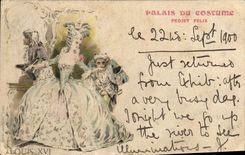 PALAIS DU COSTUME
PROJET FELIX
Le 22nd: Sept 1900
Just returned
from Exhib: after
a very busy day.
Tonight we go up
the river to see
illuminations - J
LOUIS XVI